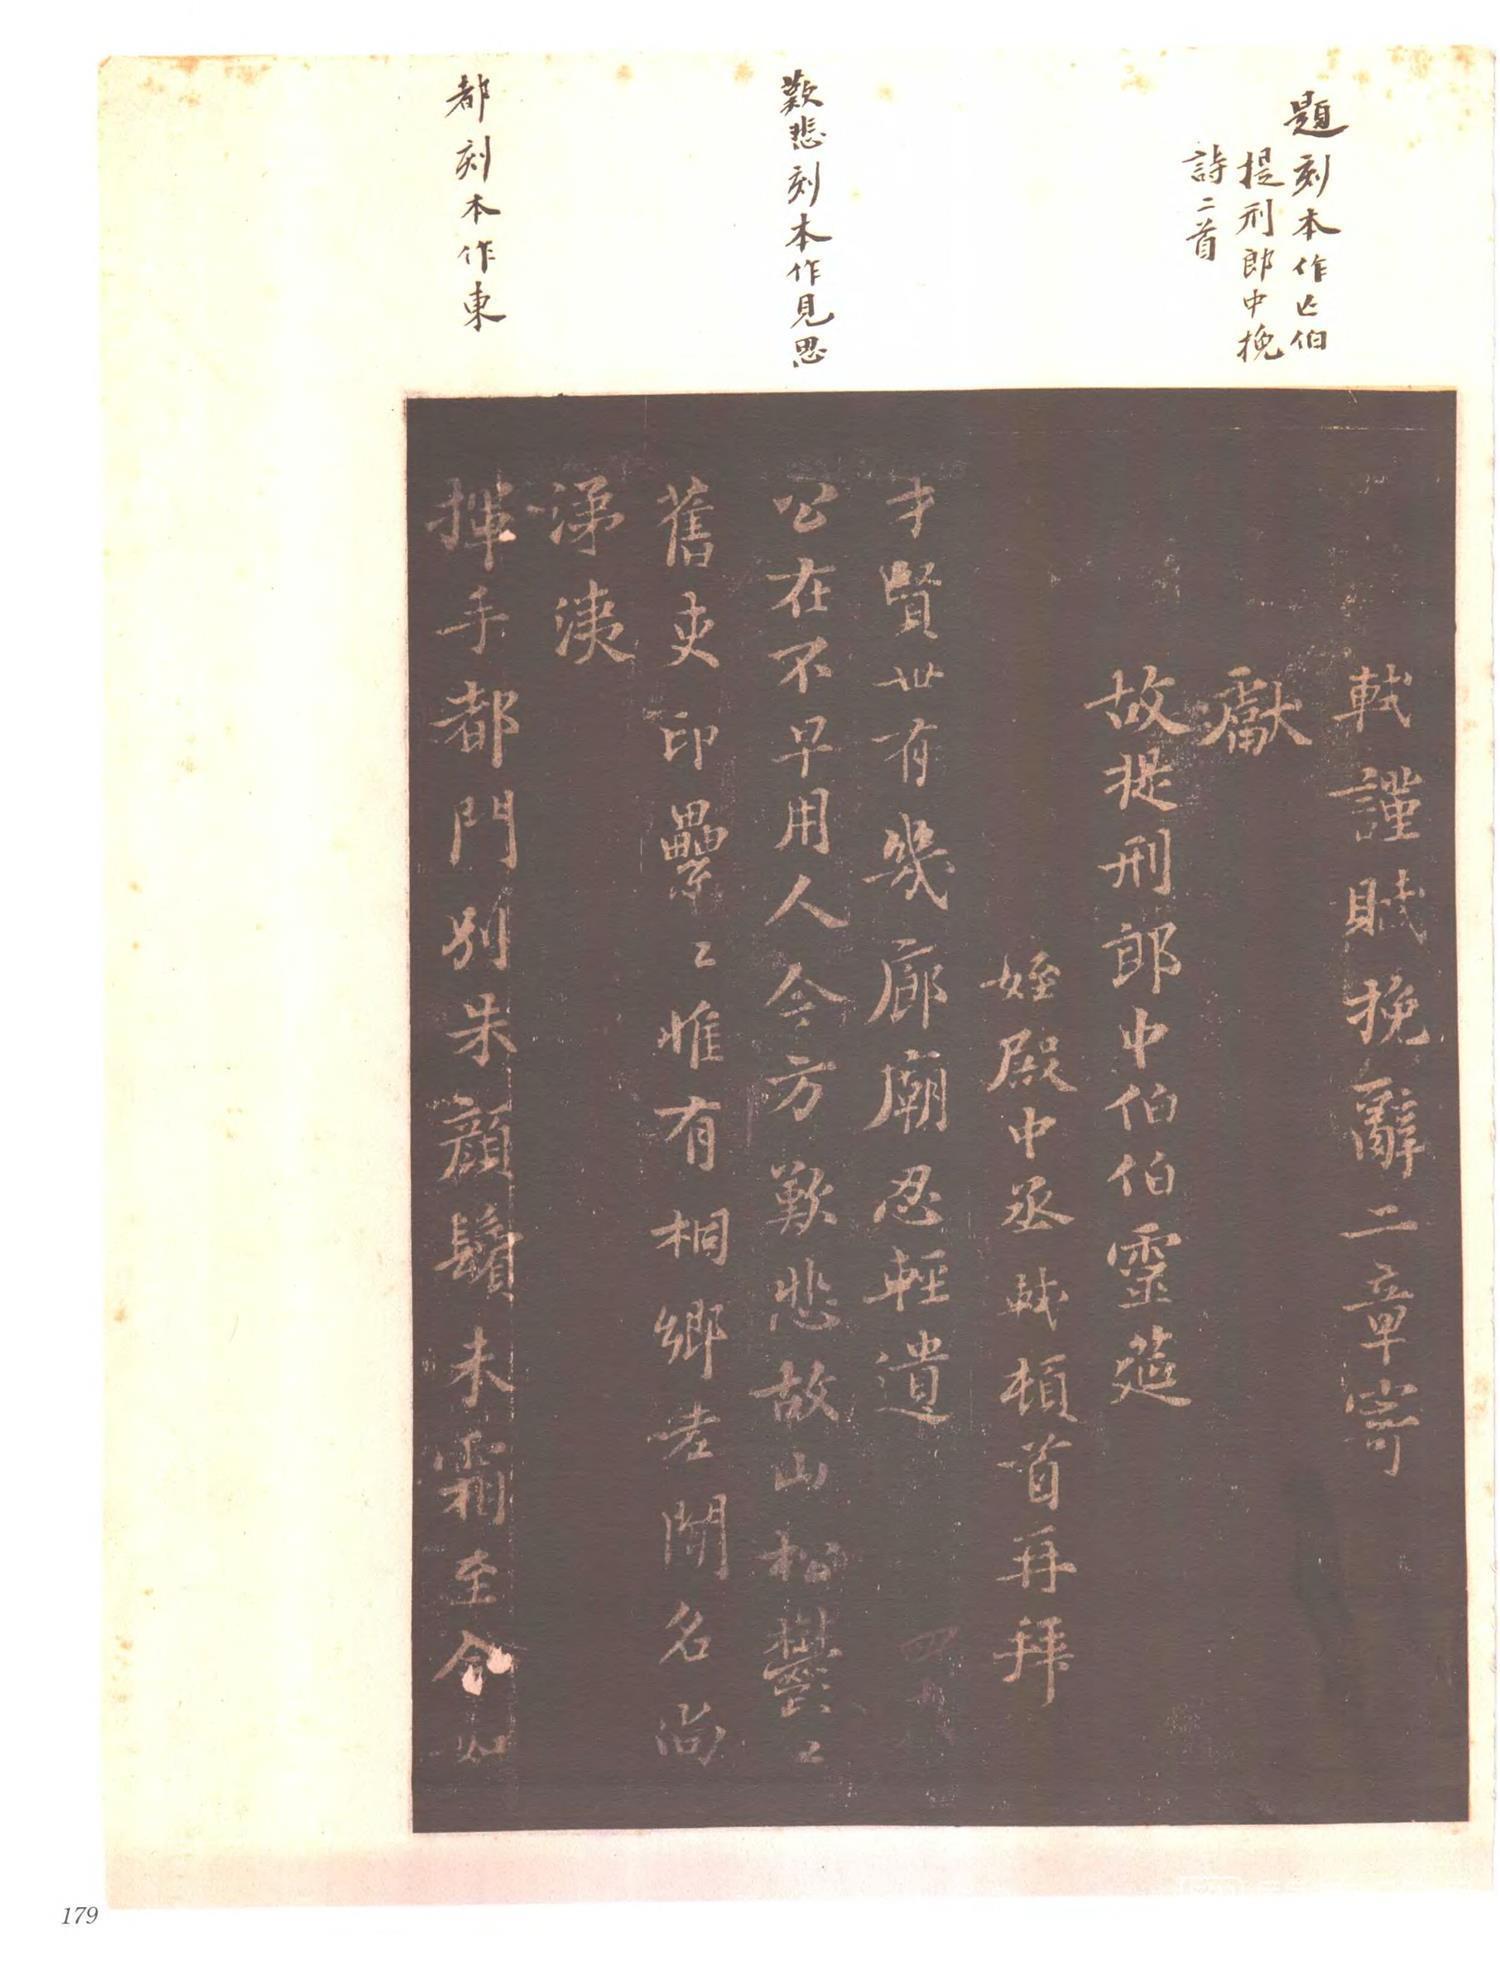 題刻本作亡伯
提刑郎中挽
詩二首
歎悲刻本作見思
都刻本作東
軾謹賦挽辭二章寄
獻
故提刑郎中伯伯靈筵
姪殿中丞軾頓首再拜
才賢世有幾廊廟忍輕遺
公在不早用人今方歎悲故山松鬱〻
舊吏印纍〻惟有桐鄉老聞名尚
涕洟
揮手都門別朱顏鬢未霜至今如
179